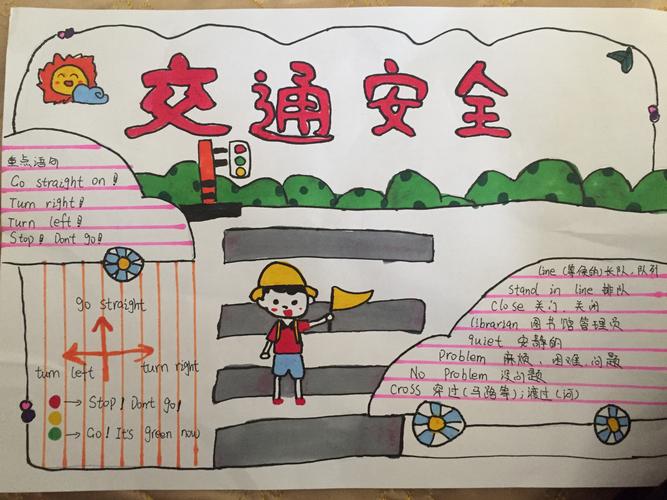 交通安全
重点语句
Go straight on!
Turn right!
Turn left!
Stop! Dont go!
go straight
turn left
turn right
Stop! Dont go!
Go! It's green now
Line (等候的)长队,队列
Stand in line 排队
Close 关门、关闭
librarian 图书馆管理员
quiet 安静的
Problem 麻烦、困难、问题
No Problem 没问题
Cross 穿过(马路等);渡过(河)